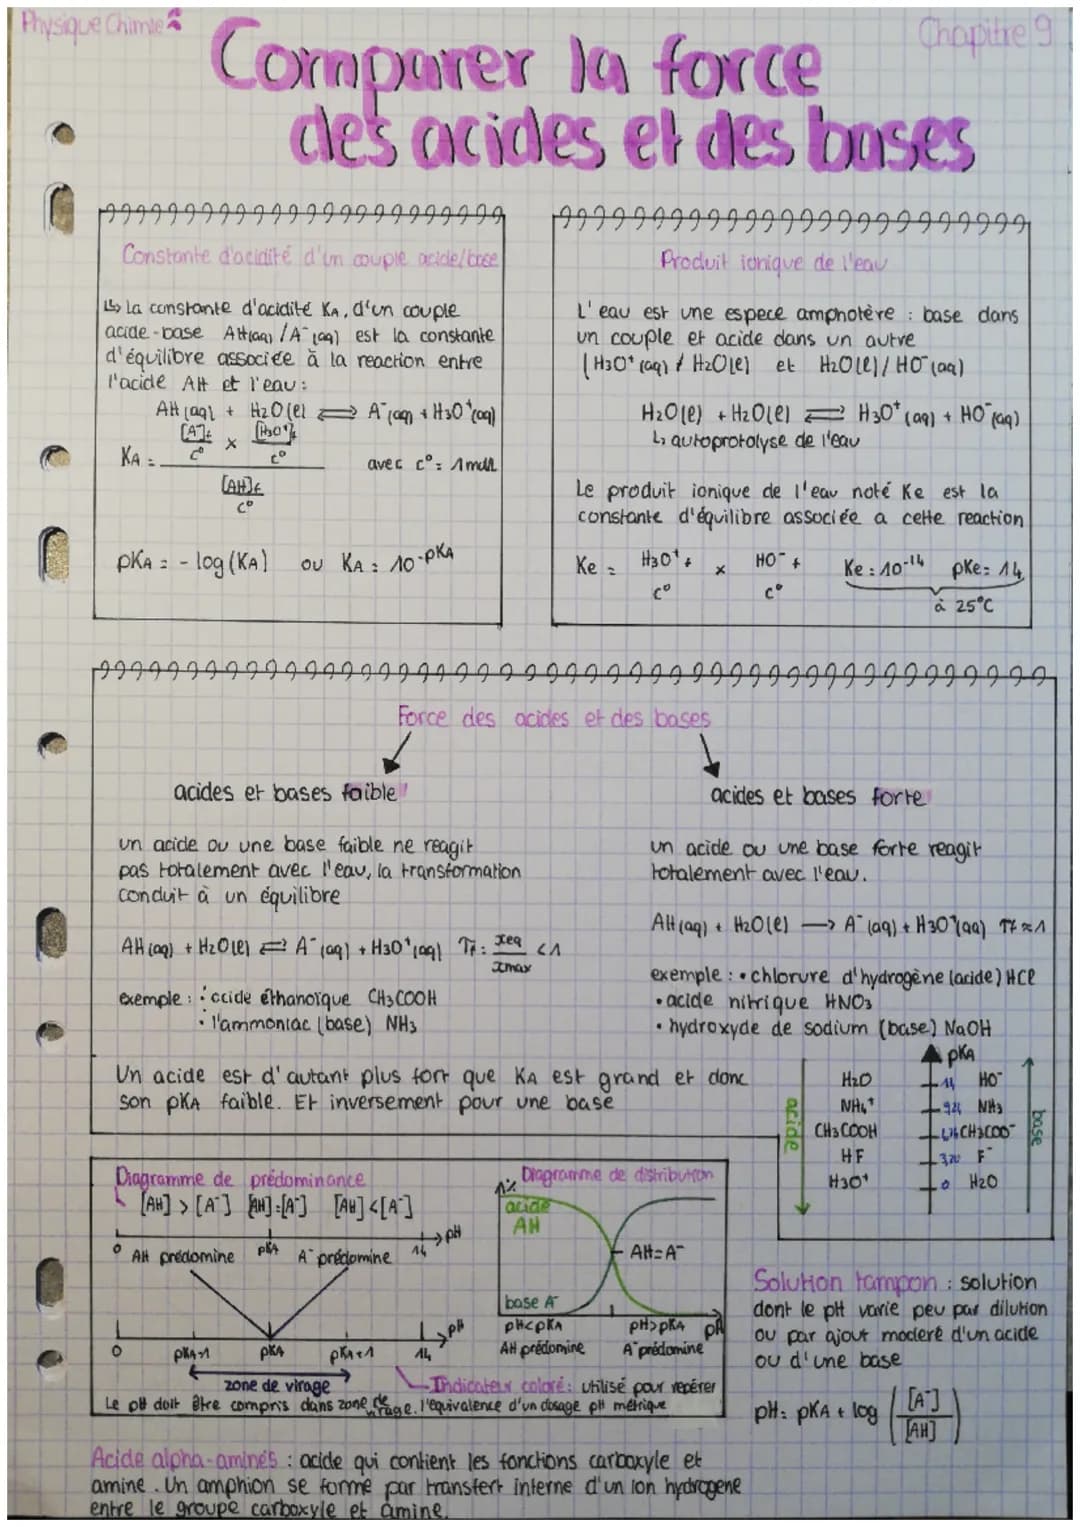 Physique Chimie
Chapitre 9
Comparer la force
des acides et des bases
Constante d'acidité d'un couple acide/base
↳ La constante d'acidité KA, d'un couple
acide-base AH(aq) / A⁻(aq) est la constante
d'équilibre associée à la reaction entre
l'acide AH et l'eau :
AH(aq) + H2O(l) ⇌ A⁻(aq) + H3O⁺(aq)
KA = ([A⁻]f / c° × [H3O⁺]f / c°) / ([AH]f / c°) avec c° = 1mol/L
pKA = - log(KA) ou KA = 10^-pKA
Produit ionique de l'eau
L'eau est une espece amphotère : base dans
un couple et acide dans un autre
(H3O⁺(aq) / H2O(l) et H2O(l) / HO⁻(aq)
H2O(l) + H2O(l) ⇌ H3O⁺(aq) + HO⁻(aq)
↳ autoprotolyse de l'eau
Le produit ionique de l'eau noté Ke est la
constante d'équilibre associée a cette reaction
Ke = H3O⁺f / c° × HO⁻f / c° Ke = 10⁻¹⁴ pKe = 14
à 25°C
Force des acides et des bases
acides et bases faible
un acide ou une base faible ne reagit
pas totalement avec l'eau, la transformation
conduit à un équilibre
AH(aq) + H2O(l) ⇌ A⁻(aq) + H3O⁺(aq) τf = xeq / xmax < 1
exemple : • acide éthanoïque CH3COOH
• l'ammoniac (base) NH3
acides et bases forte
un acide ou une base forte reagit
totalement avec l'eau.
AH(aq) + H2O(l) → A⁻(aq) + H3O⁺(aq) τf ≈ 1
exemple : • chlorure d'hydrogène (acide) HCl
• acide nitrique HNO3
• hydroxyde de sodium (base) NaOH
Un acide est d'autant plus fort que KA est grand et donc
son pKA faible. Et inversement pour une base
pKA
H2O 14 HO⁻
NH4⁺ 9,24 NH3
CH3COOH CH3COO⁻
HF 3,20 F⁻
H3O⁺ 0 H2O
acide
base
Diagramme de prédominance
[AH] > [A⁻] [AH] = [A⁻] [AH] < [A⁻]
0 AH prédomine pKA A⁻ prédomine 14 pH
0 pKA-1 pKA pKA+1 14 pH
zone de virage
Indicateur coloré : utilisé pour repérer
Le pH doit être compris dans zone de virage. l'équivalence d'un dosage pH métrique
Diagramme de distribution
%
acide
AH
AH = A⁻
base A⁻
pH<pKA pH>pKA pH
AH prédomine A⁻ prédomine
Solution tampon : solution
dont le pH varie peu par dilution
ou par ajout moderé d'un acide
ou d'une base
pH = pKA + log ([A⁻] / [AH])
Acide alpha-aminés : acide qui contient les fonctions carboxyle et
amine. Un amphion se forme par transfert interne d'un ion hydrogene
entre le groupe carboxyle et amine.